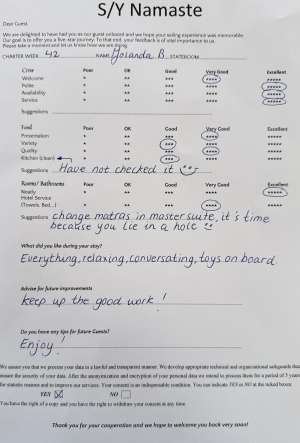 S/Y Namaste
Dear Guest
We are delighted to have had you as our guest onboard and we hope your sailing experience was memorable.
Our goal is to offer you a five-star journey. To that end, your feedback is of vital importance to us.
Please take a moment and let us know how we are doing.
CHARTER WEEK: 42 NAME: Yolanda B. STATEROOM:
Crew Poor OK Good Very Good Excellent
Welcome * ** *** **** *****
Polite * ** *** **** *****
Availability * ** *** **** *****
Service * ** *** **** *****
Suggestions
Food Poor OK Good Very Good Excellent
Presentation * ** *** **** *****
Variety * ** *** **** *****
Quality * ** *** **** *****
Kitchen (clean) * ** *** **** *****
Suggestions Have not checked it
Rooms/ Bathrooms Poor OK Good Very Good Excellent
Neatly * ** *** **** *****
Hotel Service
(Towels, Bed...) * ** *** **** *****
Suggestions change matras in master suite, it's time
because you lie in a hole
What did you like during your stay?
Everything, relaxing, conversating, toys on board
Advise for future improvements
keep up the good work!
Do you have any tips for future Guests?
Enjoy!
We assure you that we process your data in a lawful and transparent manner. We develop appropriate technical and organisational safeguards that
ensure the security of your data. After the anonymization and encryption of your personal data we intend to process them for a period of 5 years
for statistic reasons and to improve our services. Your consent is an indispensable condition. You can indicate YES or NO at the ticked boxes:
YES NO
You have the right of a copy and you have the right to withdraw your consent at any time.
Thank you for your cooperation and we hope to welcome you back very soon!